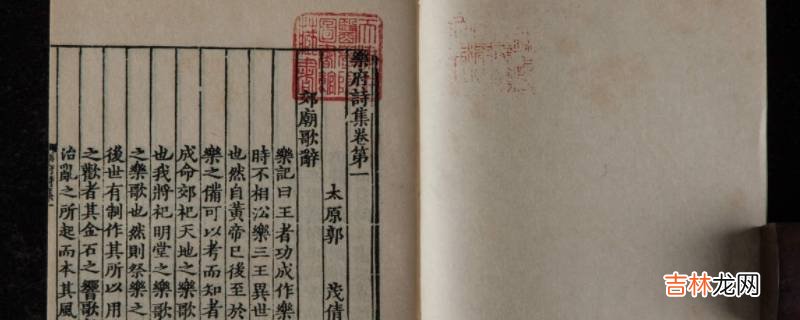 樂府詩集卷第一
太原郭 茂倩
郊廟歌辭
樂記曰王者功成作樂
時不相㳂樂三王異世
也然自黃帝已後至於
樂之備可以考而知者
成命郊祀天地之樂歌
也我將祀明堂之樂歌
之樂歌也然則祭樂之
後世有制作其所以用
之歡者其金石之響歌
治亂之所起而本其風
吉林龙网